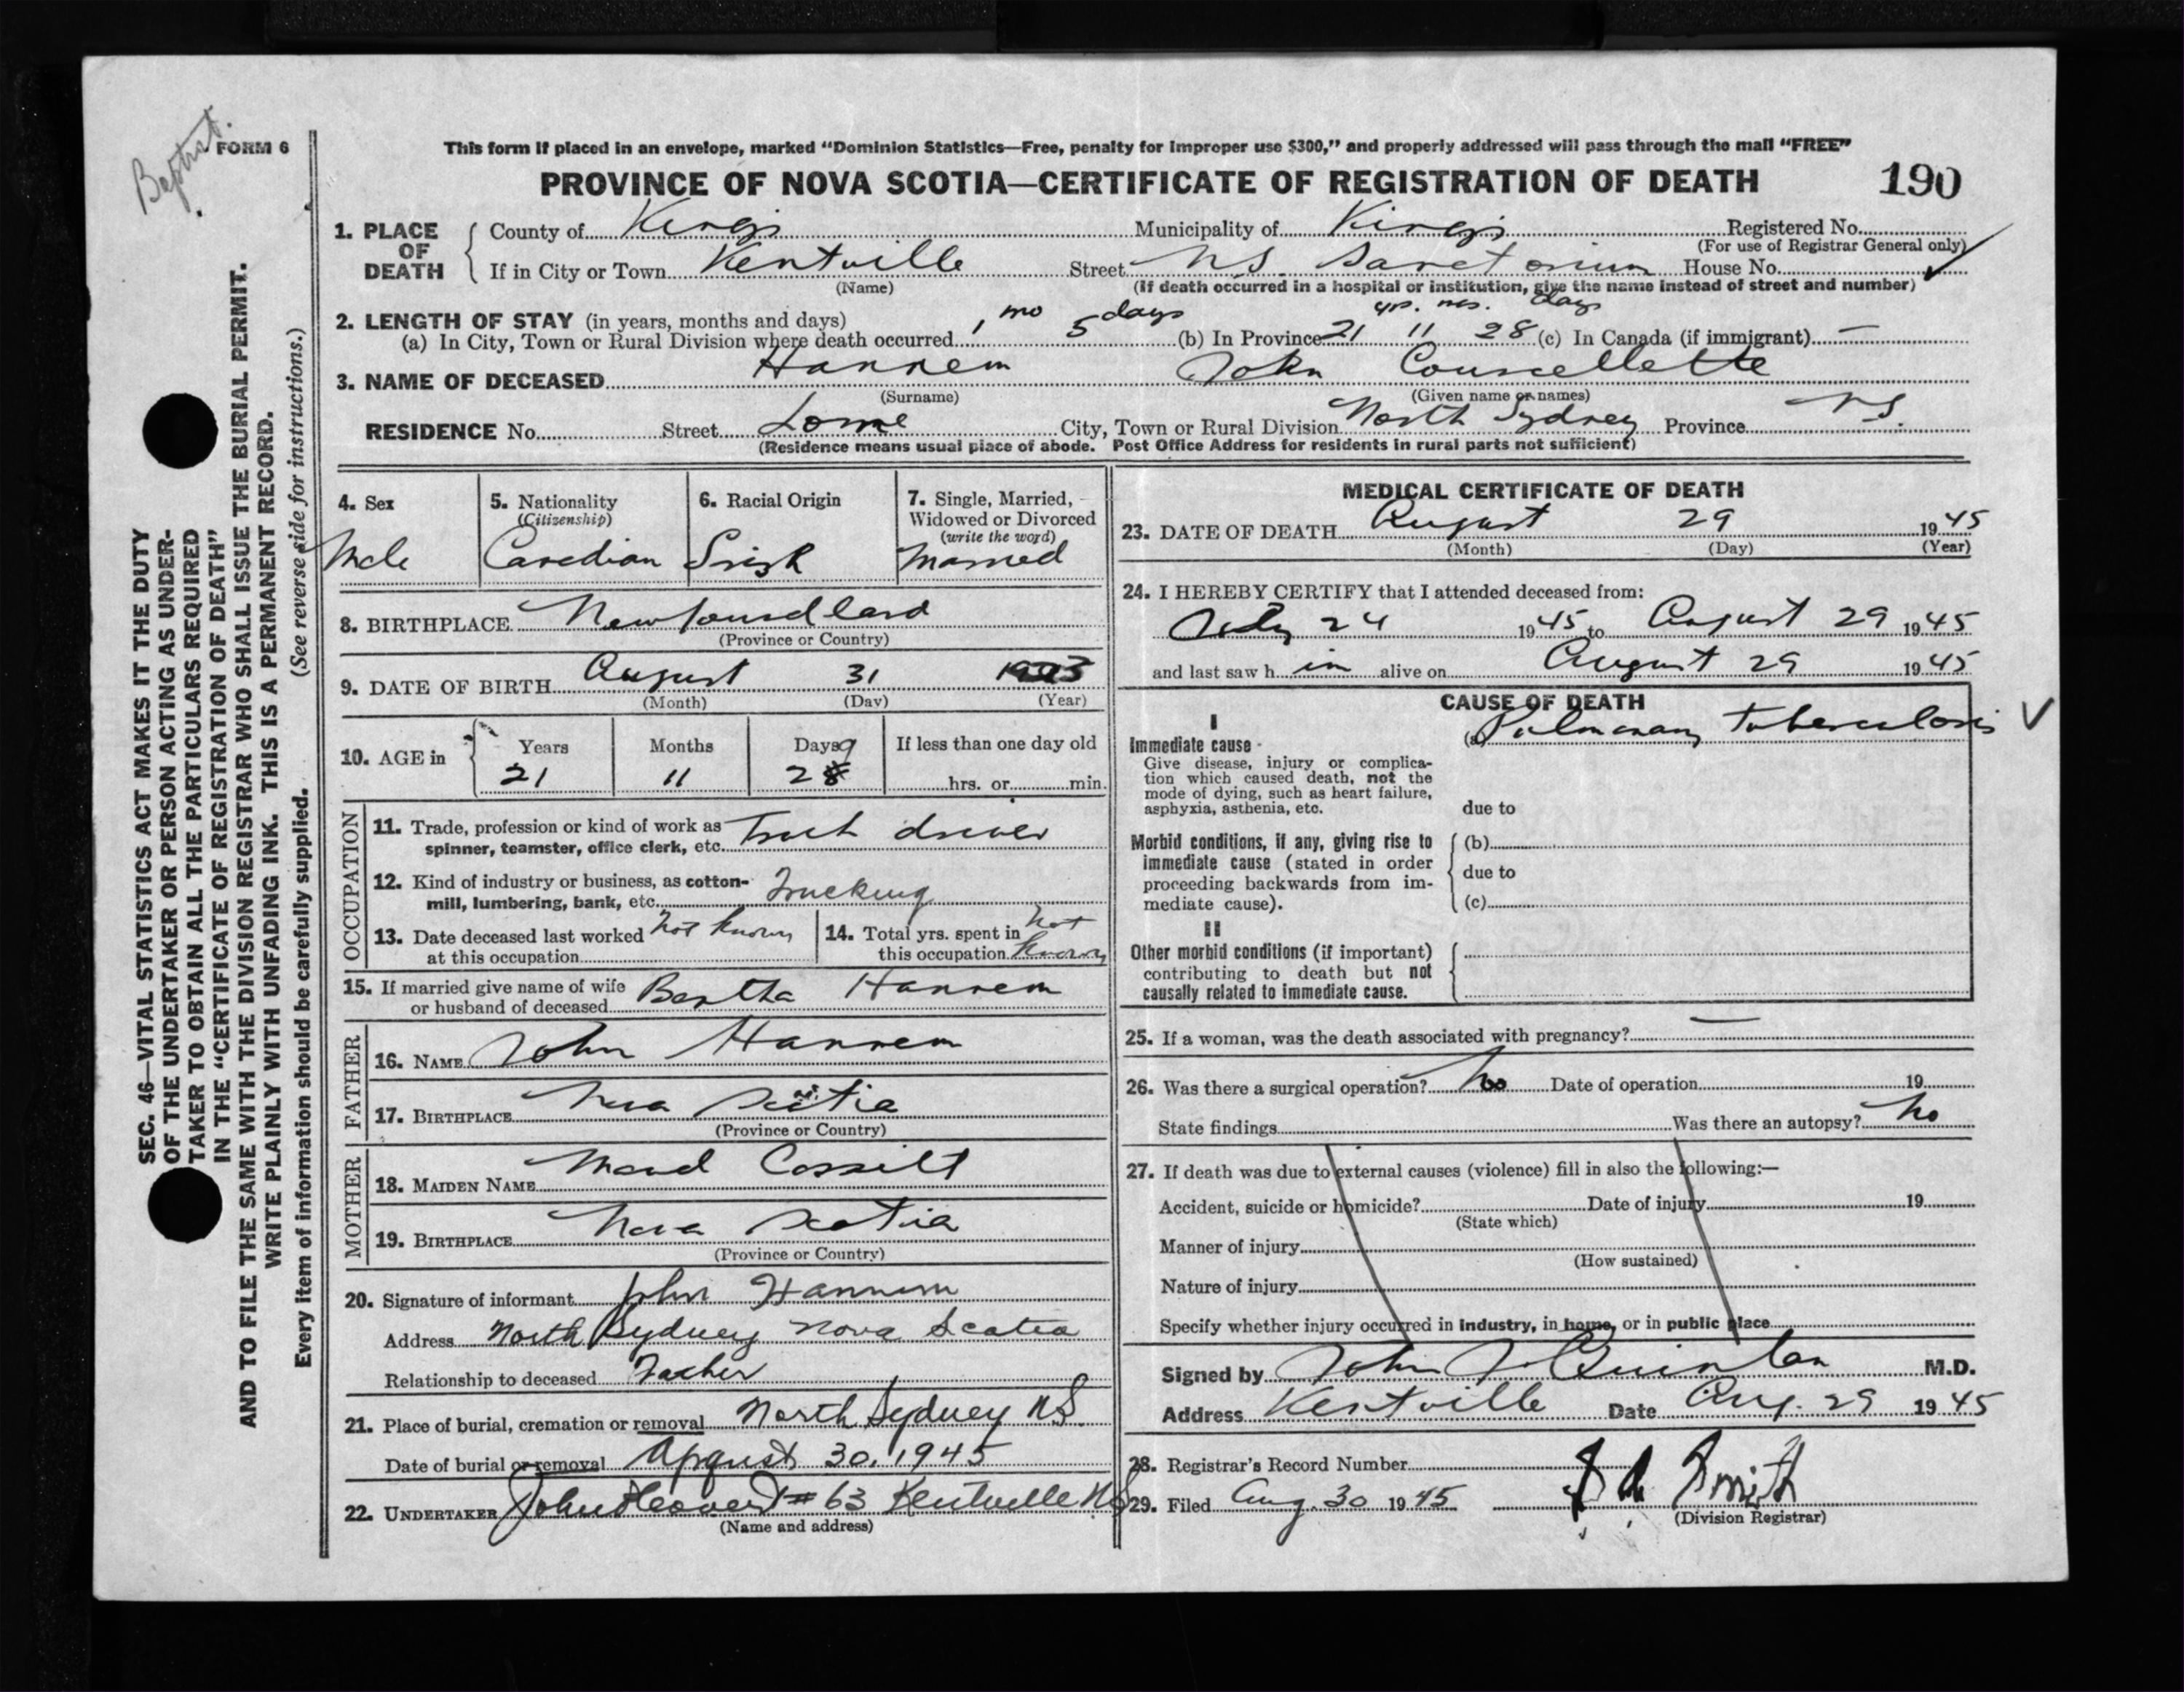 Baptist.
FORM 6
This form if placed in an envelope, marked "Dominion Statistics—Free, penalty for improper use $300," and properly addressed will pass through the mail "FREE"
PROVINCE OF NOVA SCOTIA—CERTIFICATE OF REGISTRATION OF DEATH
190
SEC. 46—VITAL STATISTICS ACT MAKES IT THE DUTY
OF THE UNDERTAKER OR PERSON ACTING AS UNDER-
TAKER TO OBTAIN ALL THE PARTICULARS REQUIRED
IN THE "CERTIFICATE OF REGISTRATION OF DEATH"
AND TO FILE THE SAME WITH THE DIVISION REGISTRAR WHO SHALL ISSUE THE BURIAL PERMIT.
WRITE PLAINLY WITH UNFADING INK. THIS IS A PERMANENT RECORD.
Every item of information should be carefully supplied. (See reverse side for instructions.)
1. PLACE OF DEATH
County of Kings Municipality of Kings Registered No.
(For use of Registrar General only)
If in City or Town Kentville Street N.S. Sanctorium House No.
(Name) (If death occurred in a hospital or institution, give the name instead of street and number)
2. LENGTH OF STAY (in years, months and days)
(a) In City, Town or Rural Division where death occurred 1 mo 5 days (b) In Province 21 yr. 11 mos. 28 days (c) In Canada (if immigrant) —
3. NAME OF DECEASED Hannem John Courcellette
(Surname) (Given name or names)
RESIDENCE No. Street Lorne City, Town or Rural Division North Sydney Province N.S.
(Residence means usual place of abode. Post Office Address for residents in rural parts not sufficient)
4. Sex
Male
5. Nationality
(Citizenship)
Canadian
6. Racial Origin
Irish
7. Single, Married,
Widowed or Divorced
(write the word)
Married
8. BIRTHPLACE Newfoundland
(Province or Country)
9. DATE OF BIRTH August 31
(Month) (Day) (Year)
10. AGE in Years Months Days If less than one day old
21 11 28 9 hrs. or min.
OCCUPATION
11. Trade, profession or kind of work as
spinner, teamster, office clerk, etc. Truck driver
12. Kind of industry or business, as cotton-
mill, lumbering, bank, etc. Trucking
13. Date deceased last worked
at this occupation not known
14. Total yrs. spent in
this occupation not known
15. If married give name of wife
or husband of deceased Bertha Hannem
FATHER
16. NAME John Hannem
17. BIRTHPLACE Nova Scotia
(Province or Country)
MOTHER
18. MAIDEN NAME Maud Cossilt
19. BIRTHPLACE Nova Scotia
(Province or Country)
20. Signature of informant John Hannem
Address North Sydney Nova Scotia
Relationship to deceased Father
21. Place of burial, cremation or removal North Sydney N.S.
Date of burial or removal August 30, 1945
22. UNDERTAKER John # 63 Kentville N.S.
(Name and address)
MEDICAL CERTIFICATE OF DEATH
23. DATE OF DEATH August 29 1945
(Month) (Day) (Year)
24. I HEREBY CERTIFY that I attended deceased from:
July 24 1945 to August 29 1945
and last saw h im alive on August 29 1945
CAUSE OF DEATH
I
Immediate cause
Give disease, injury or complica-
tion which caused death, not the
mode of dying, such as heart failure,
asphyxia, asthenia, etc.
(a) Pulmonary tuberculosis
due to
Morbid conditions, if any, giving rise to
immediate cause (stated in order
proceeding backwards from im-
mediate cause).
(b)
due to
(c)
II
Other morbid conditions (if important)
contributing to death but not
causally related to immediate cause.
25. If a woman, was the death associated with pregnancy? —
26. Was there a surgical operation? No Date of operation 19
State findings Was there an autopsy? No
27. If death was due to external causes (violence) fill in also the following:—
Accident, suicide or homicide? Date of injury 19
(State which)
Manner of injury
(How sustained)
Nature of injury
Specify whether injury occurred in industry, in home, or in public place
Signed by John J Quinlan M.D.
Address Kentville Date Aug. 29 1945
28. Registrar's Record Number
29. Filed Aug. 30 1945 Smith
(Division Registrar)